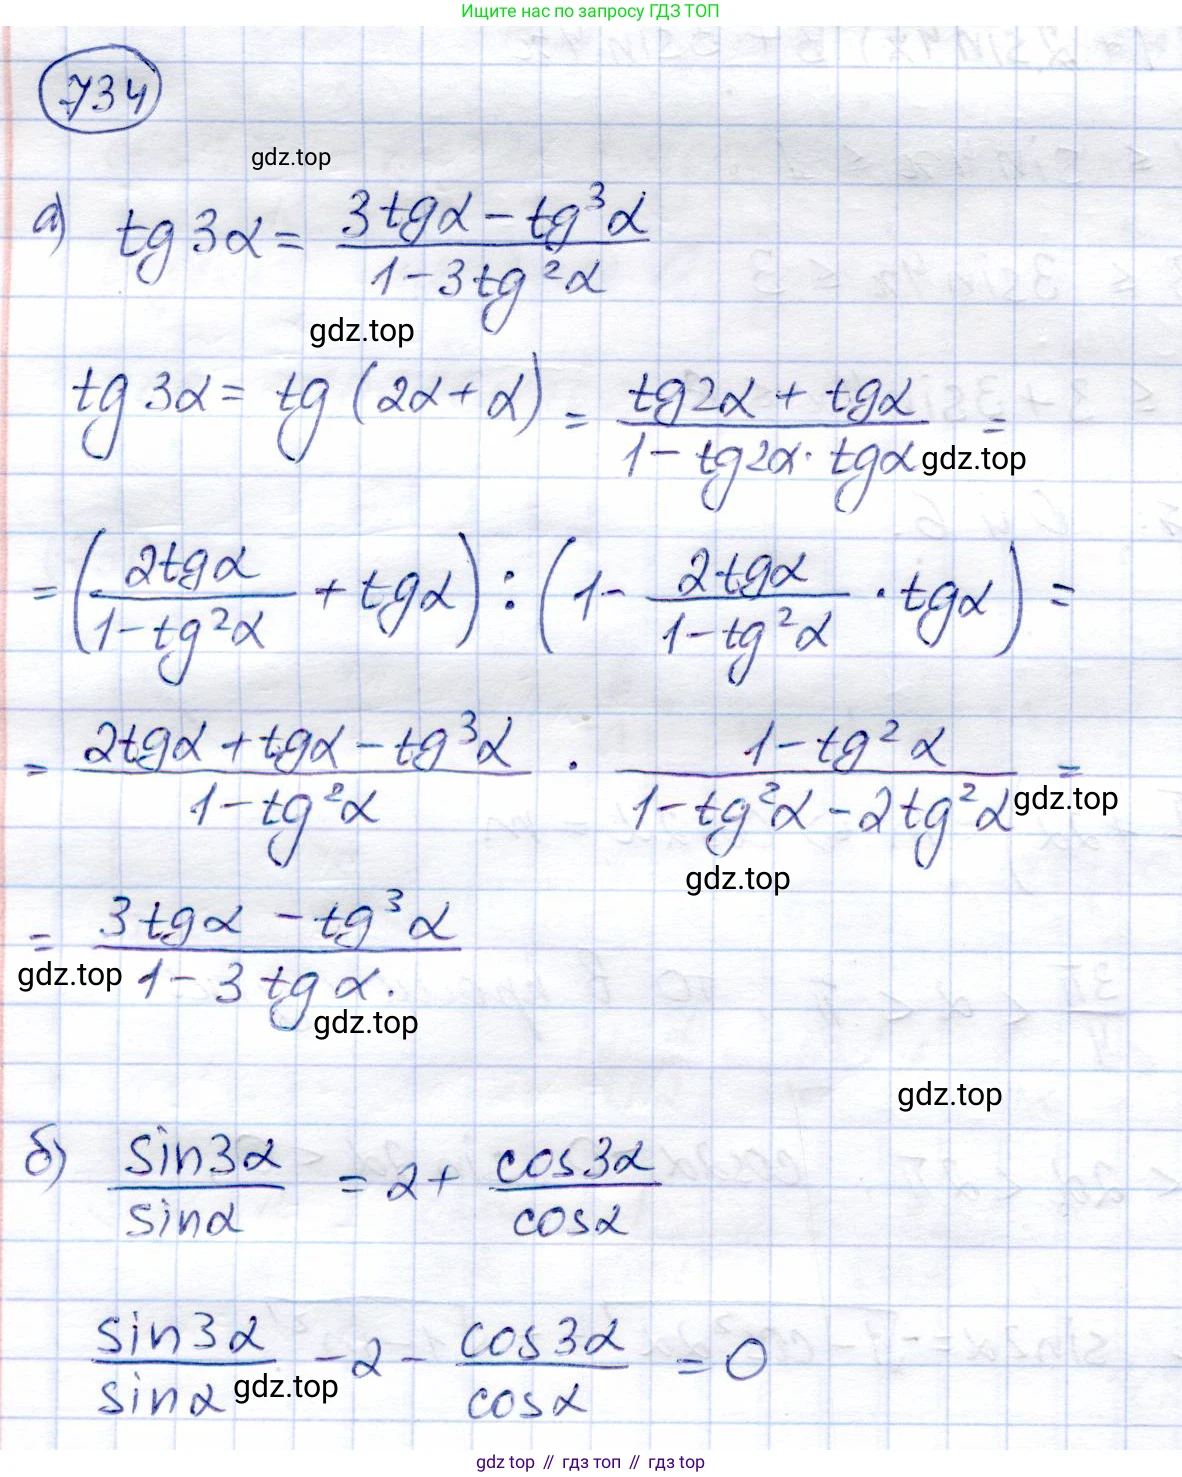 Ищите нас по запросу ГДЗ ТОП
734
gdz.top
а) tg 3α = (3tgα − tg³α) / (1 − 3tg²α)
gdz.top
tg 3α = tg (2α + α) = (tg2α + tgα) / (1 − tg2α · tgα) =
gdz.top
= (2tgα / (1 − tg²α) + tgα) : (1 − 2tgα / (1 − tg²α) · tgα) =
= (2tgα + tgα − tg³α) / (1 − tg²α) · (1 − tg²α) / (1 − tg²α − 2tg²α) =
gdz.top
gdz.top
= (3tgα − tg³α) / (1 − 3tgα).
gdz.top
gdz.top
gdz.top
б) sin3α / sinα = 2 + cos3α / cosα
sin3α / sinα − 2 − cos3α / cosα = 0
gdz.top
gdz.top // гдз топ // гдз top